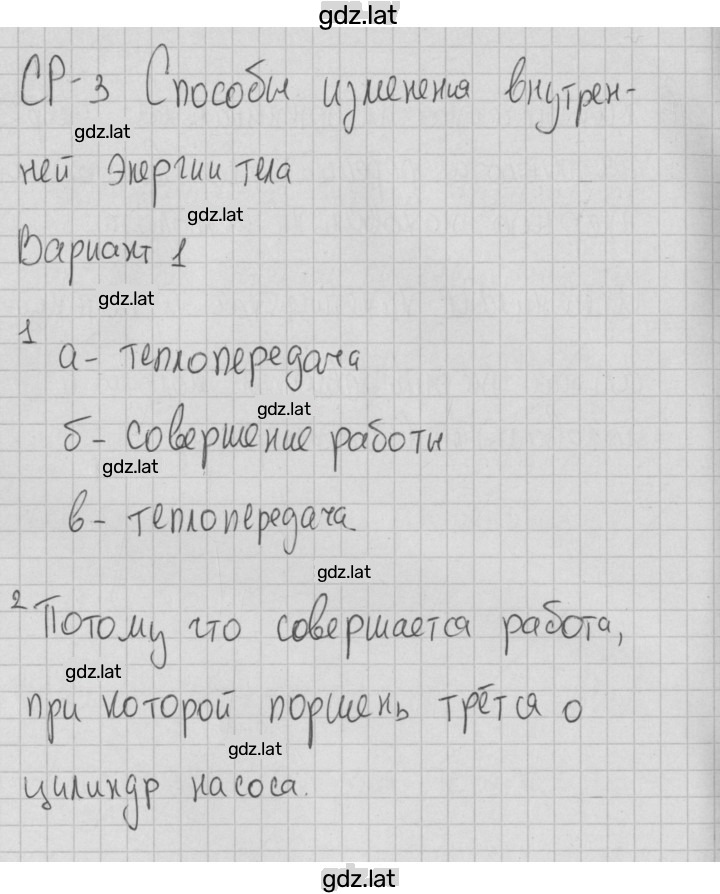 gdz.lat
СР-3 Способы изменения внутрен-
gdz.lat
ней энергии тела
gdz.lat
Вариант 1
gdz.lat
1 а- теплопередача
gdz.lat
б- совершение работы
gdz.lat
в- теплопередача
gdz.lat
2 Потому что совершается работа,
gdz.lat
при которой поршень трётся о
gdz.lat
цилиндр насоса.
gdz.lat